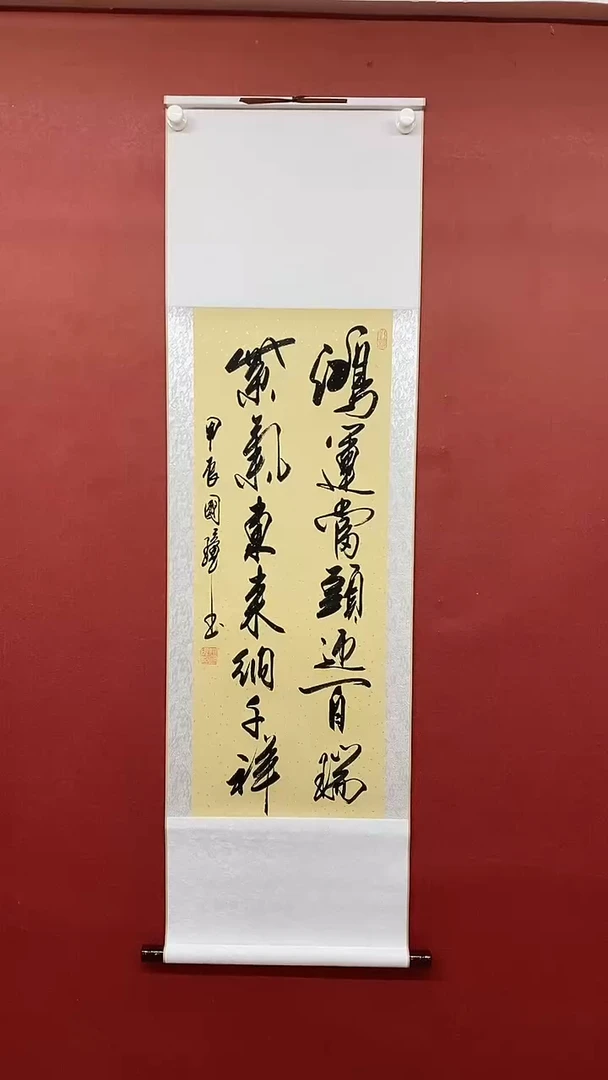 鴻運當頭迎百瑞
紫氣東來納千祥
甲辰國璋